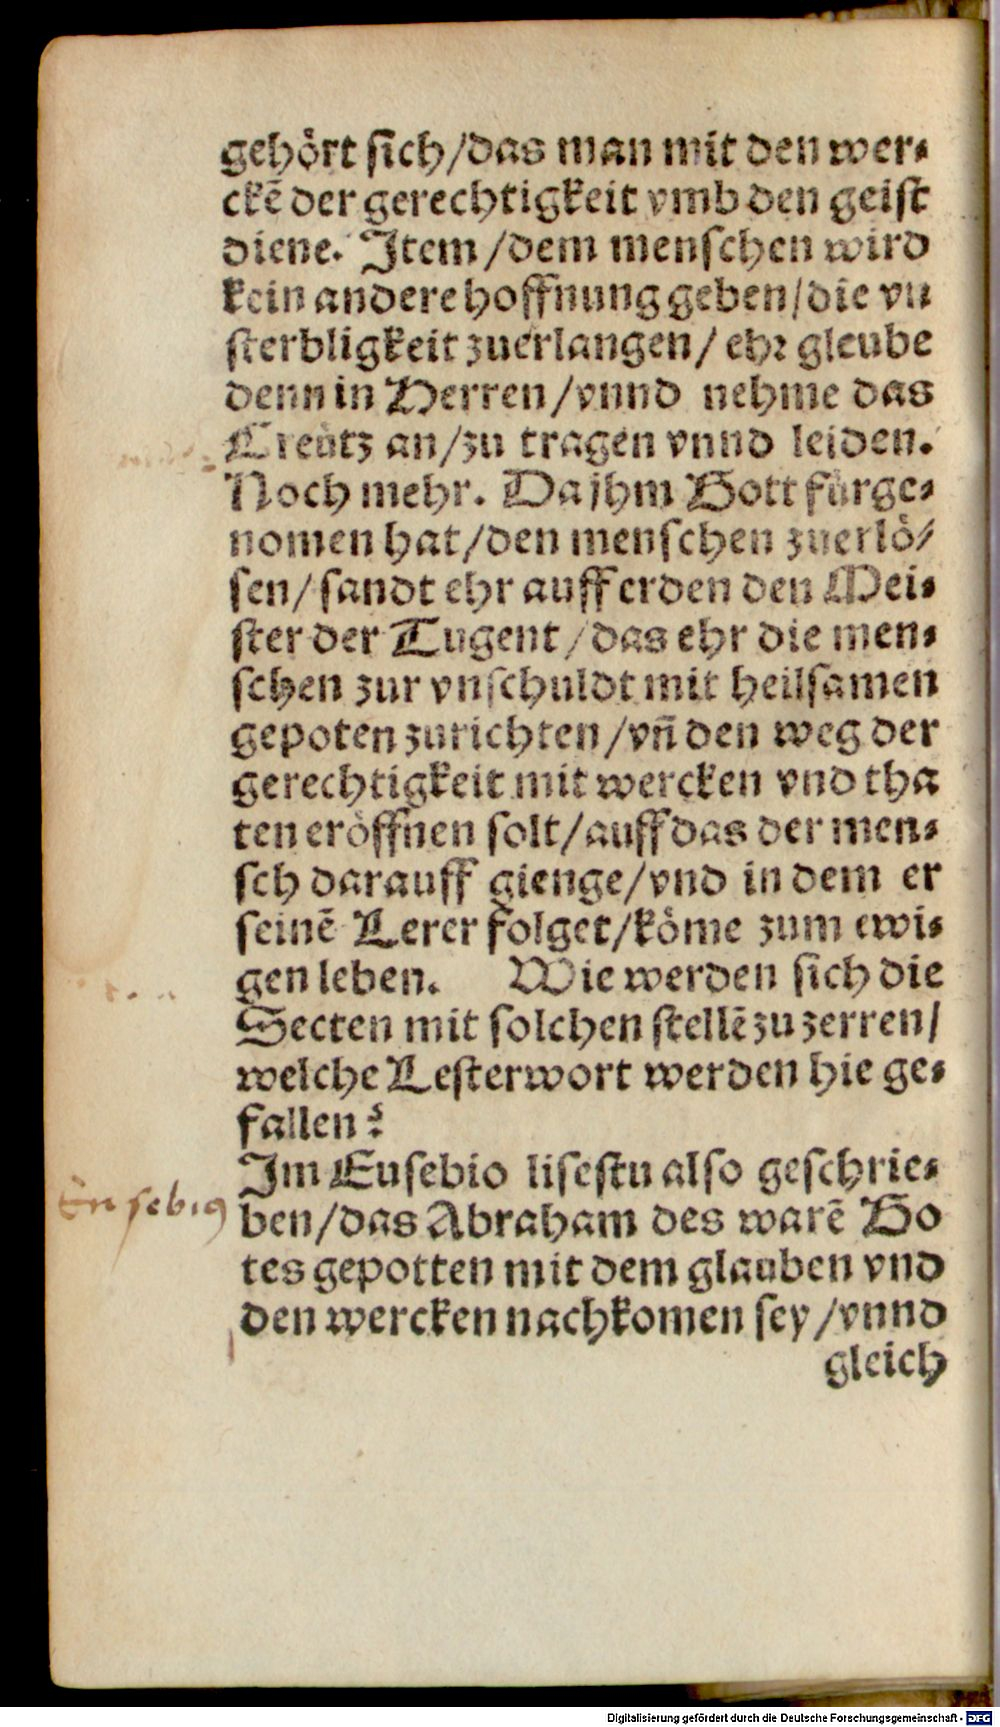 gehört sich/das man mit den wer⸗
ckē der gerechtigkeit vmb den geist
diene. Item/dem menschen wird
kein andere hoffnung geben/die vn
sterbligkeit zuerlangen/ ehr gleube
denn in Herren/vnnd nehme das
Creütz an/zu tragen vnnd leiden.
Noch mehr. Da jhm Gott fürge⸗
nomen hat/den menschen zuerlö⸗
sen/sandt ehr auff erden den Mei⸗
ster der Tugent/das ehr die men⸗
schen zur vnschuldt mit heilsamen
gepoten zurichten/vñ den weg der
gerechtigkeit mit wercken vnd tha
ten eröffnen solt/auff das der men⸗
sch darauff gienge/vnd in dem er
seinē Lerer folget/köme zum ewi⸗
gen leben. Wie werden sich die
Secten mit solchen stellē zu zerren/
welche Lesterwort werden hie ge⸗
fallen?
Im Eusebio lisestu also geschrie⸗
Eusebiꝰ
ben/das Abraham des warē Go
tes gepotten mit dem glauben vnd
den wercken nachkomen sey/vnnd
gleich
Digitalisierung gefördert durch die Deutsche Forschungsgemeinschaft - DFG